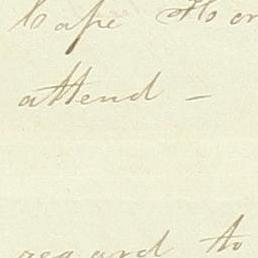 Cape Hor
attend –
regard to